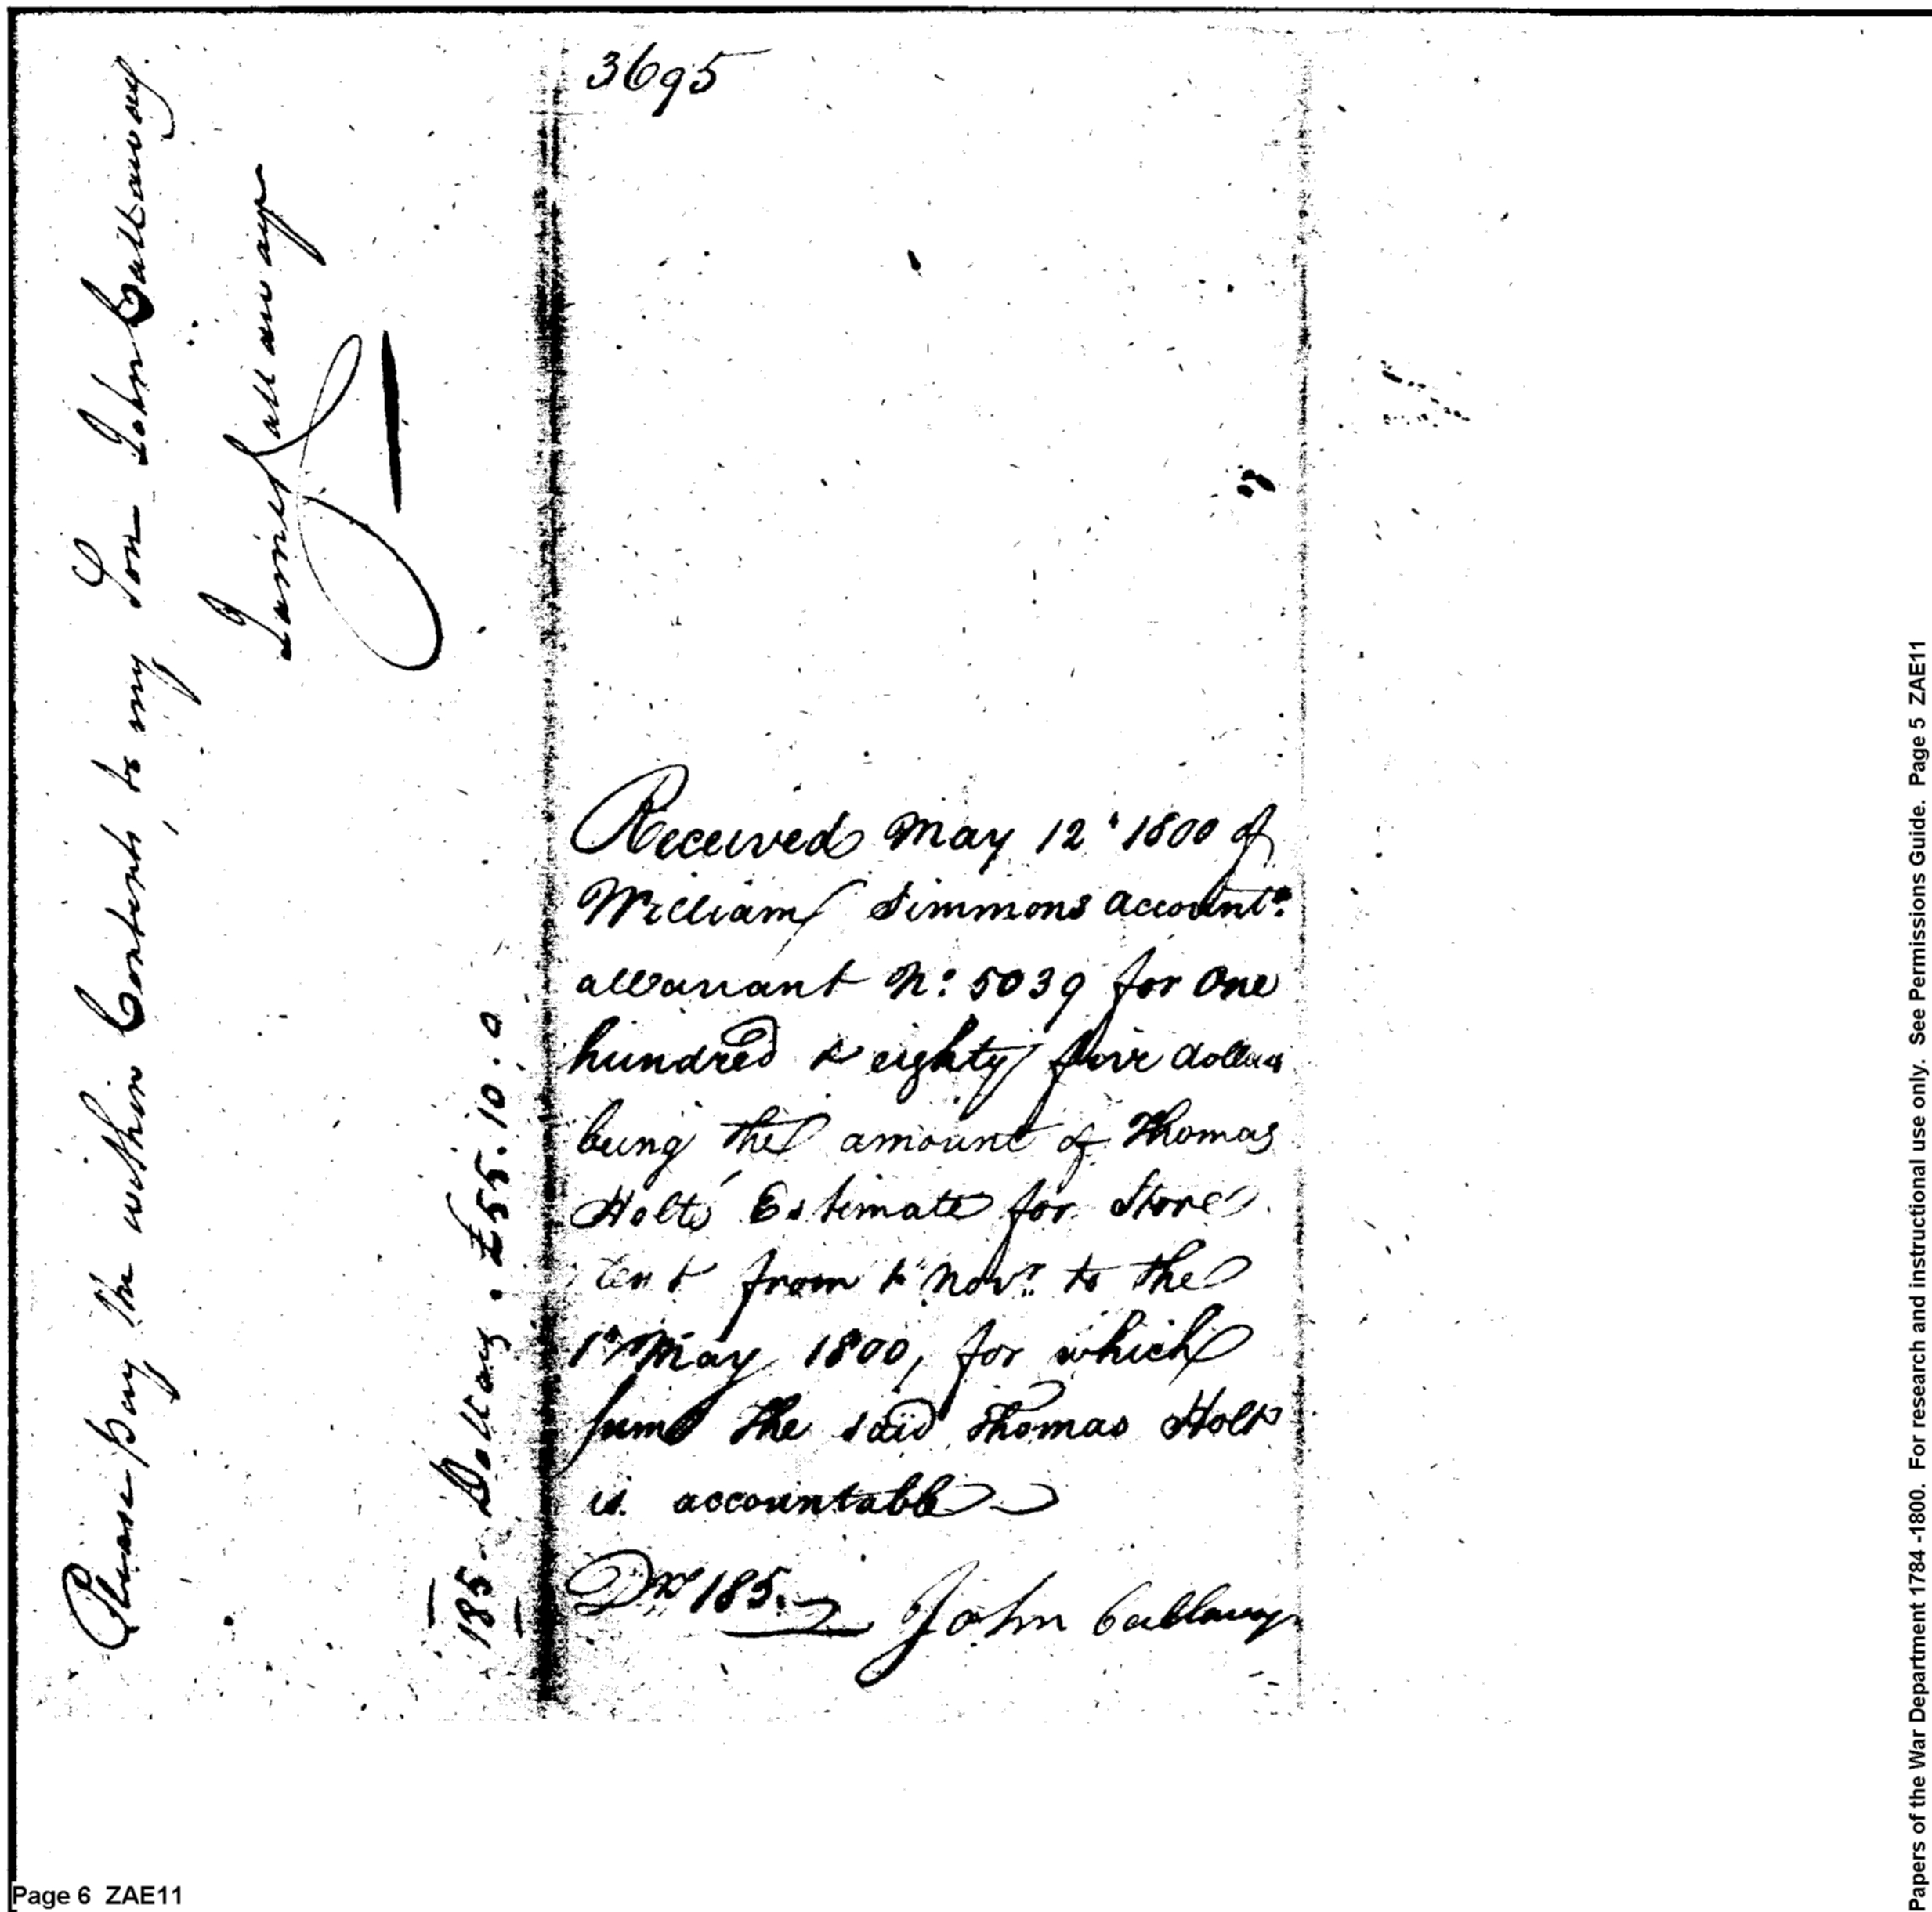 Please pay the within Contents to my Son John Callaway.
James Callaway
185 Dollars. £55.10.0
3695
Received May 12 1800 of
William Simmons Account.t
a Warrant No: 5039 for One
hundred & eighty five dollars
being the amount of Thomas
Holts Estimate for Store
rent from 1st Novr. to the
1st May 1800, for which
sum the said Thomas Holt
is accountable
Drs 185. John Callaway
Page 6 ZAE11
Papers of the War Department 1784 -1800. For research and instructional use only. See Permissions Guide. Page 5 ZAE11